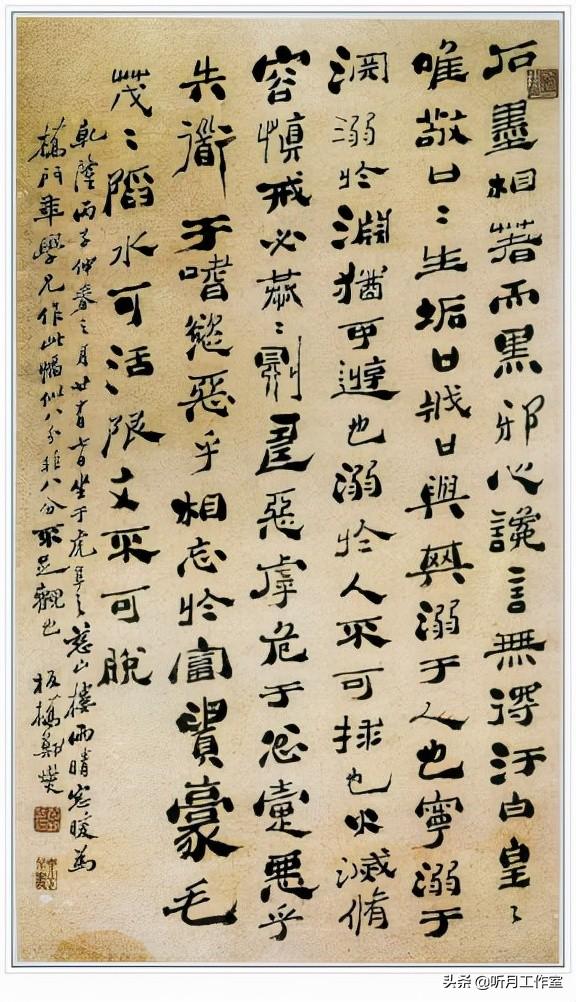 石墨相著而黑邪心讒言無得汙白皇〻
唯敬口〻生垢口戕口與其溺于人也寧溺于
淵溺於淵猶可遊也溺於人不可救也火滅脩
容慎戒必恭〻則壽惡虖危于忿疐惡乎
失道于嗜慾惡乎相忘於富貴豪毛
茂〻陷水可活陷文不可脫
乾隆丙子仲春之月廿有坐于虎阜之憨山樓雨晴窗暖為
年學兄作此幅似八分非八分不足觀也 板橋鄭燮
头条 @听月工作室